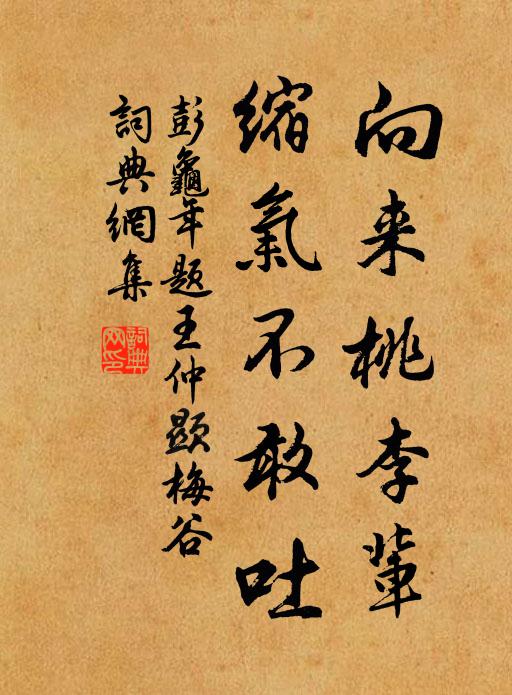 向来桃李輩
縮氣不敢吐
彭龜年題王仲顯梅谷
詞典網集
詞典
网印